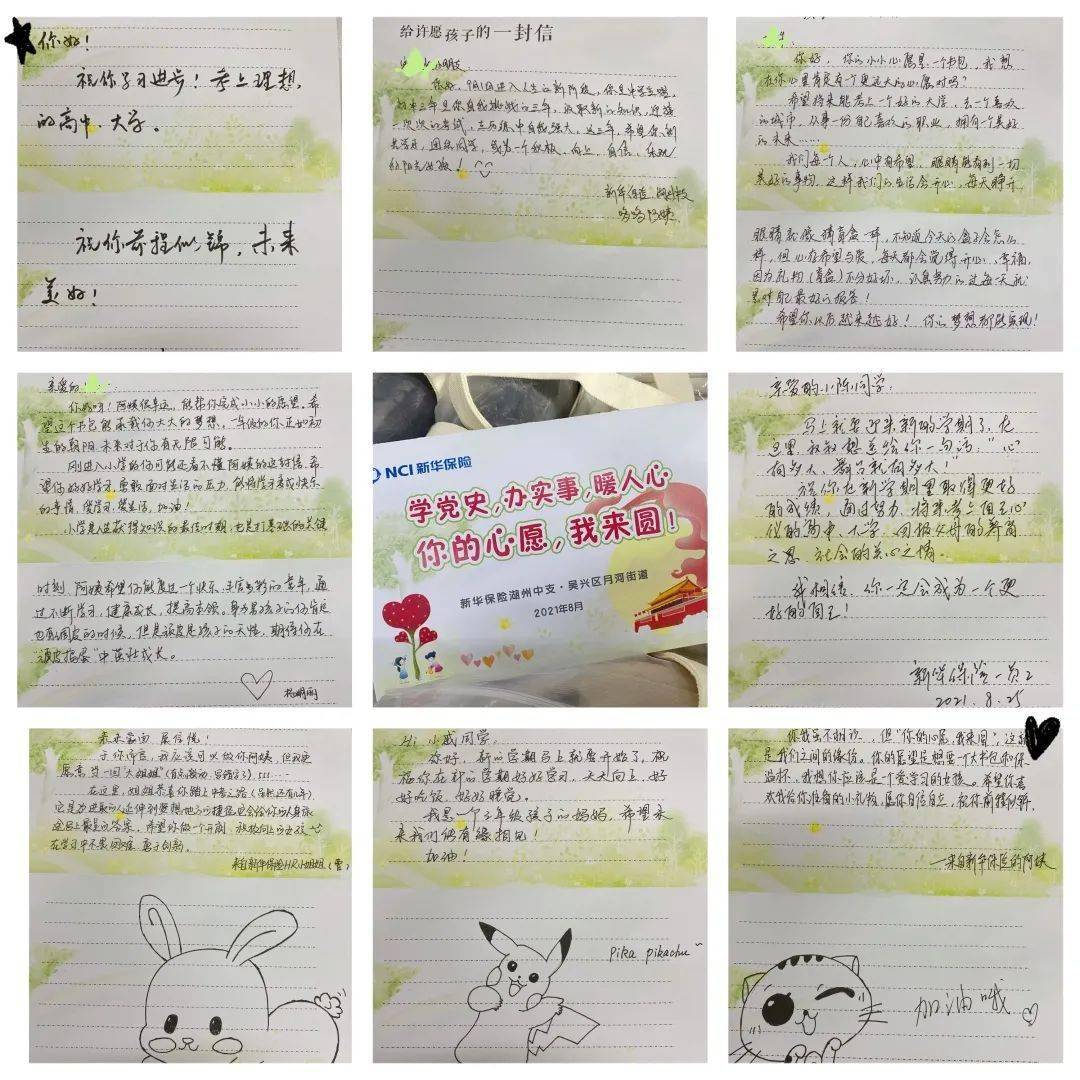 你好！
祝你学习进步！考上理想
的高中、大学。
祝你前程似锦，未来
美好！
给许愿孩子的一封信
小朋友
你好，9月1日进入人生的新阶段，你是中学生啦，
初中三年是你自我挑战的三年，汲取新的知识，迎接
一次次的考试，在历练中自我强大，这三年，希望你
学习，团结同学，成为一个积极、向上、自信、乐观
的阳光女孩！
新华保险
阿姨
你好，你的小小心愿是一个书包，我想
在你心里肯定有个更远大的心愿对吗？
希望将来能考上一个好的大学，去一个喜欢
的城市，从事一份自己喜欢的职业，拥有一个美好
的未来……
我们每个人，心中有希望，眼睛能看到一切
美好的事物，这样我们的生活会开心，每天睁开
眼睛就像猜盲盒一样，不知道今天的盒子会怎么
样，但心存希望与爱，每天都会觉得开心、幸福，
因为礼物（盲盒）不分好坏，认真努力的过每一天就
是对自己最好的报答！
希望你以后越来越好！你的梦想都能实现！
亲爱的
你好呀！阿姨很幸运，能帮你完成小小的愿望。希
望这个书包能承载你大大的梦想，一年级的你正如初
生的朝阳，未来对于你有无限可能。
刚进入小学的你可能还看不懂阿姨的这封信，希
望你好好学习，勇敢面对生活的压力，能将学习看成快乐
的事情，爱学习，爱生活，加油！
小学是人生获得知识的最佳时期，也是打基础的关键
时刻，阿姨希望你能度过一个快乐、丰富多彩的童年，通
过不断学习，健康成长，提高本领，身为男孩子的你肯定
也有调皮的时候，但是调皮是孩子的天性，期待你在
“调皮捣蛋”中茁壮成长。
杨明丽
NCI 新华保险
学党史，办实事，暖人心
你的心愿，我来圆！
新华保险湖州中支·吴兴区月河街道
2021年8月
亲爱的小陈同学：
马上就要迎来新的学期了，在
这里叔叔想送给你一句话：“心
有多大，舞台就有多大！”
祝你在新学期里取得更好
的成绩，通过努力，将来考上自己心
仪的高中、大学，回报父母的养育
之恩，社会的关心之情。
我相信，你一定会成为一个更
好的自己！
新华保险一员工
2021.8.25
素未蒙面 展信悦！
于你而言，我应该可以做你阿姨，但我更
愿意当一回“大姐姐”
在这里，姐姐恭喜你踏上中学之路
在学习中不畏困难，勇于创新。
来自新华保险HR小姐姐（雪）
Hi 小戚同学，
你好，新的学期马上就要开始了，祝
福你在新的学期好好学习，天天向上，好
好吃饭，好好睡觉。
我是一个三年级孩子的妈妈，希望未
来我们能有缘相见！
加油！
pika pikachu~
你我素不相识，但“你的心愿，我来圆”，这就
是我们之间的缘份。你的愿望是想要一个大书包和保
温杯，我想你应该是个爱学习的女孩。希望你喜
欢我给你准备的小礼物，愿你自信自立，祝你前程似锦。
——来自新华保险的阿姨
加油哦